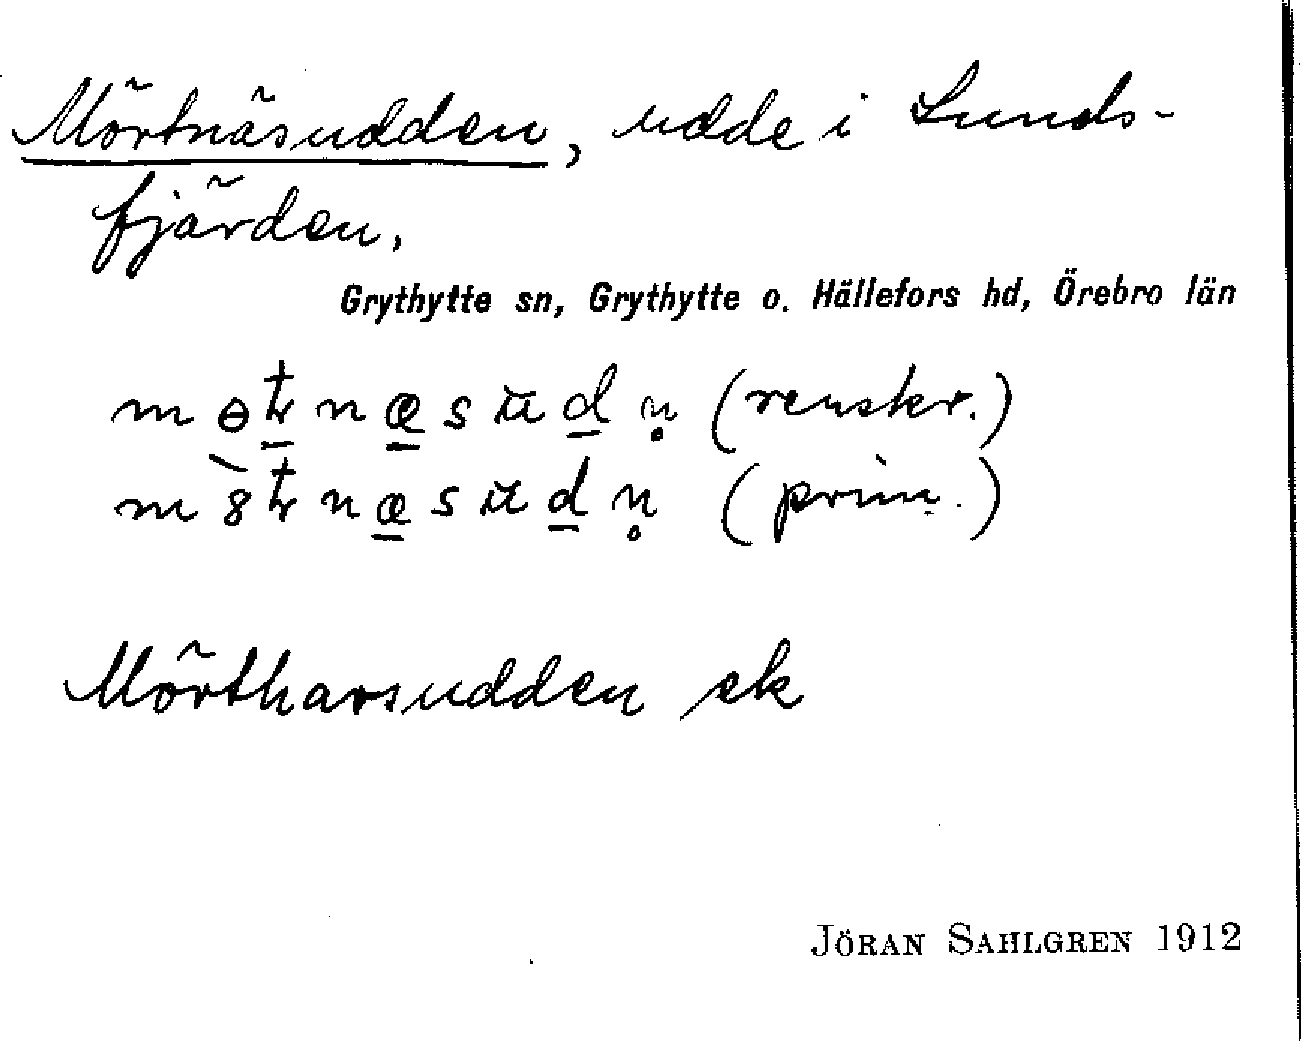 Mörtnäsudden, udde i Lunds-
fjärden.
Grythytte sn, Grythytte o. Hällefors hd, Örebro län
(renskr.)
(prim.)
Mörtharsudden ek
JÖRAN SAHLGREN 1912